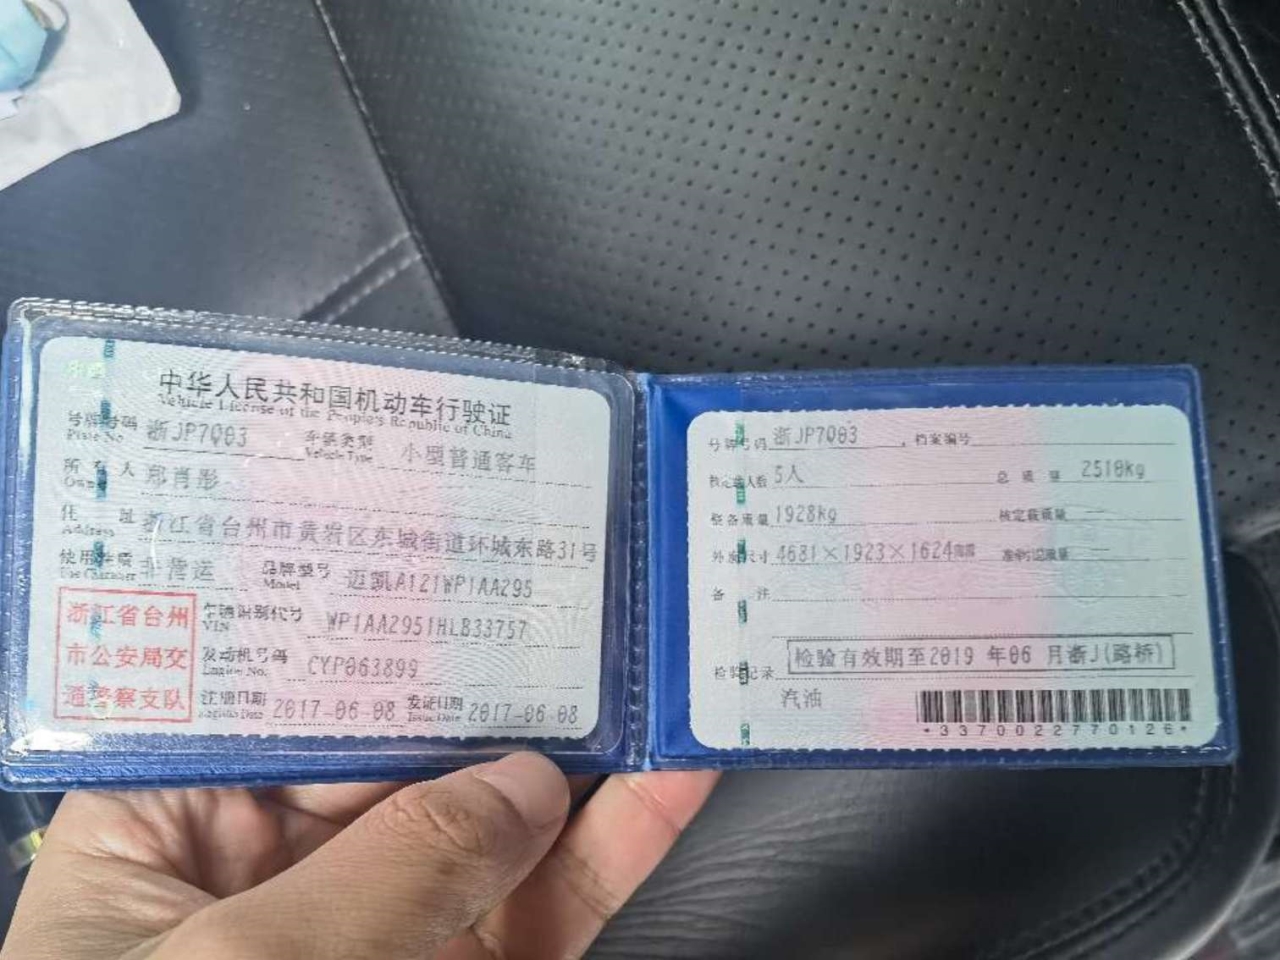 中华人民共和国机动车行驶证
Vehicle License of the People's Republic of China
号牌号码 浙JP7003 车辆类型 小型普通客车
Plate No. Vehicle Type
所有人 郑肖彤
Owner
住址 浙江省台州市黄岩区东城街道环城东路31号
Address
使用性质 非营运 品牌型号 迈凯A121WP1AA295
Use Character Model
浙江省台州
市公安局交
通警察支队
车辆识别代号 WP1AA2951HLB33757
VIN
发动机号码 CYP063899
Engine No.
注册日期 2017-06-08 发证日期 2017-06-08
Register Date Issue Date
号牌号码 浙JP7003 档案编号
核定载人数 5人 总质量 2510kg
整备质量 1928kg 核定载质量
外廓尺寸 4681×1923×1624mm 准牵引总质量
备注
检验记录 检验有效期至2019年06月浙J(路桥)
汽油
*3370022770126*